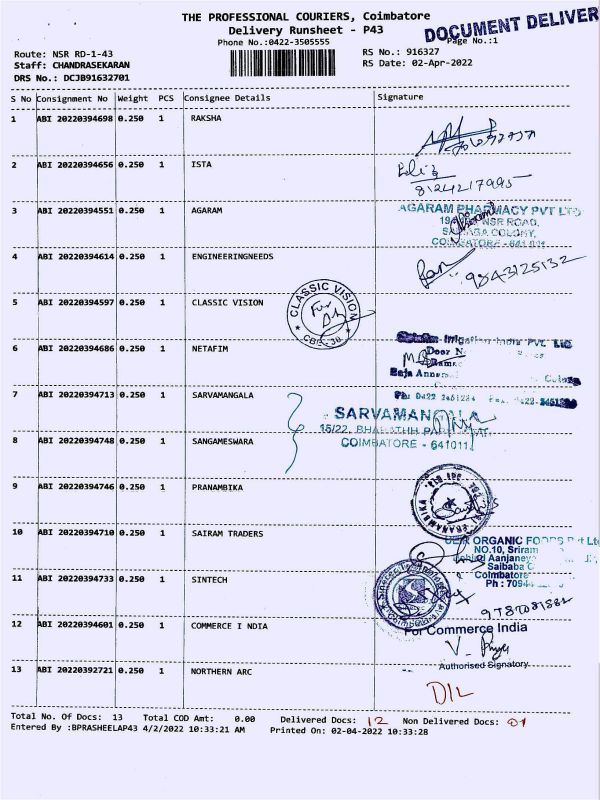 THE PROFESSIONAL COURIERS, Coimbatore
DOCUMENT DELIVER
Delivery Runsheet - P43
Phone No.:0422-3505555
Page No.:1
Route: NSR RD-1-43
RS No.: 916327
Staff: CHANDRASEKARAN
RS Date: 02-Apr-2022
DRS No.: DCJB91632701
S No Consignment No Weight PCS Consignee Details Signature
1 ABI 20220394698 0.250 1 RAKSHA
2 ABI 20220394656 0.250 1 ISTA
8124217995
3 ABI 20220394551 0.250 1 AGARAM
AGARAM PHARMACY PVT LTD
NSR ROAD,
COLONY,
641 011
4 ABI 20220394614 0.250 1 ENGINEERINGNEEDS
9843125132
5 ABI 20220394597 0.250 1 CLASSIC VISION
CLASSIC VISION
For
6 ABI 20220394686 0.250 1 NETAFIM
Irrigation India Pvt. Ltd
Door
7 ABI 20220394713 0.250 1 SARVAMANGALA
Ph: 0422 2451234
SARVAMANGALA
15/22, BHARATHH
8 ABI 20220394748 0.250 1 SANGAMESWARA
COIMBATORE - 641011
9 ABI 20220394746 0.250 1 PRANAMBIKA
PRANAMBIKA
10 ABI 20220394710 0.250 1 SAIRAM TRADERS
ORGANIC FOODS Pvt Ltd
NO.10, Sriram
Aanjaneya
Saibaba
11 ABI 20220394733 0.250 1 SINTECH
Coimbatore
Ph : 7094
12 ABI 20220394601 0.250 1 COMMERCE I NDIA
For Commerce India
Authorised Signatory
13 ABI 20220392721 0.250 1 NORTHERN ARC
D/L
Total No. Of Docs: 13 Total COD Amt: 0.00 Delivered Docs: 12 Non Delivered Docs: 01
Entered By :BPRASHEELAP43 4/2/2022 10:33:21 AM Printed On: 02-04-2022 10:33:28